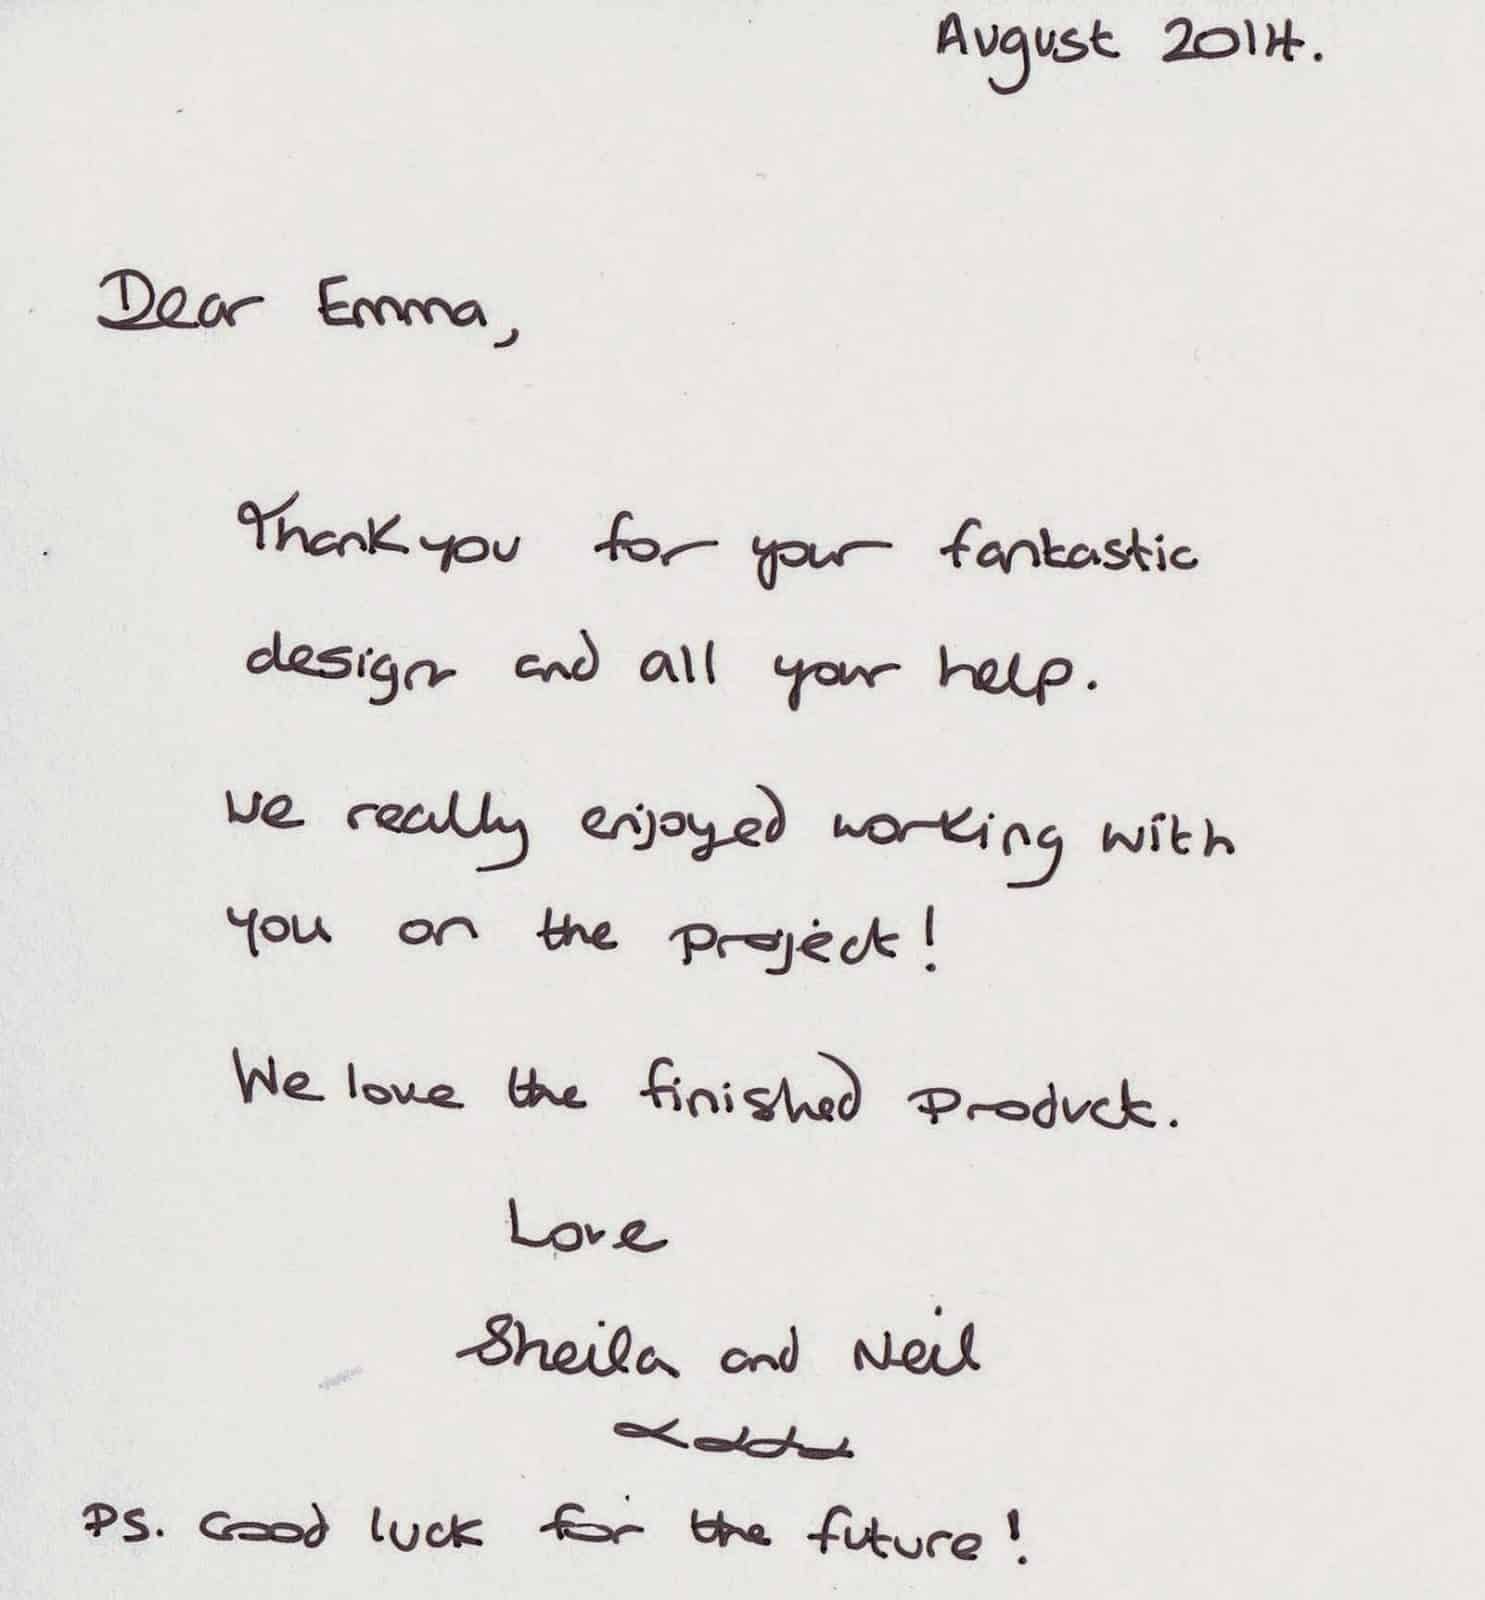 August 2014.
Dear Emma,
Thank you for your fantastic
design and all your help.
We really enjoyed working with
you on the project!
We love the finished product.
Love
Sheila and Neil
PS. Good luck for the future!